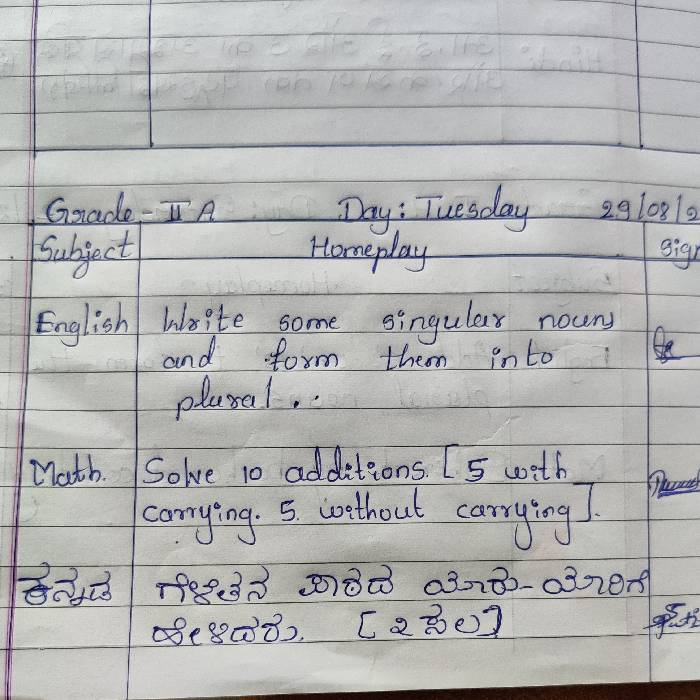 Grade - II A Day: Tuesday 29/08/2
Subject Homeplay Sign
English Write some singular nouns
and form them into
plural..
Math. Solve 10 additions. [ 5 with
carrying. 5. without carrying ].
ಕನ್ನಡ ಗೆಳೆತನ ಪಾಠದ ಯಾರು-ಯಾರಿಗೆ
ಹೇಳಿದರು. [ ೨ ಸಲ ]